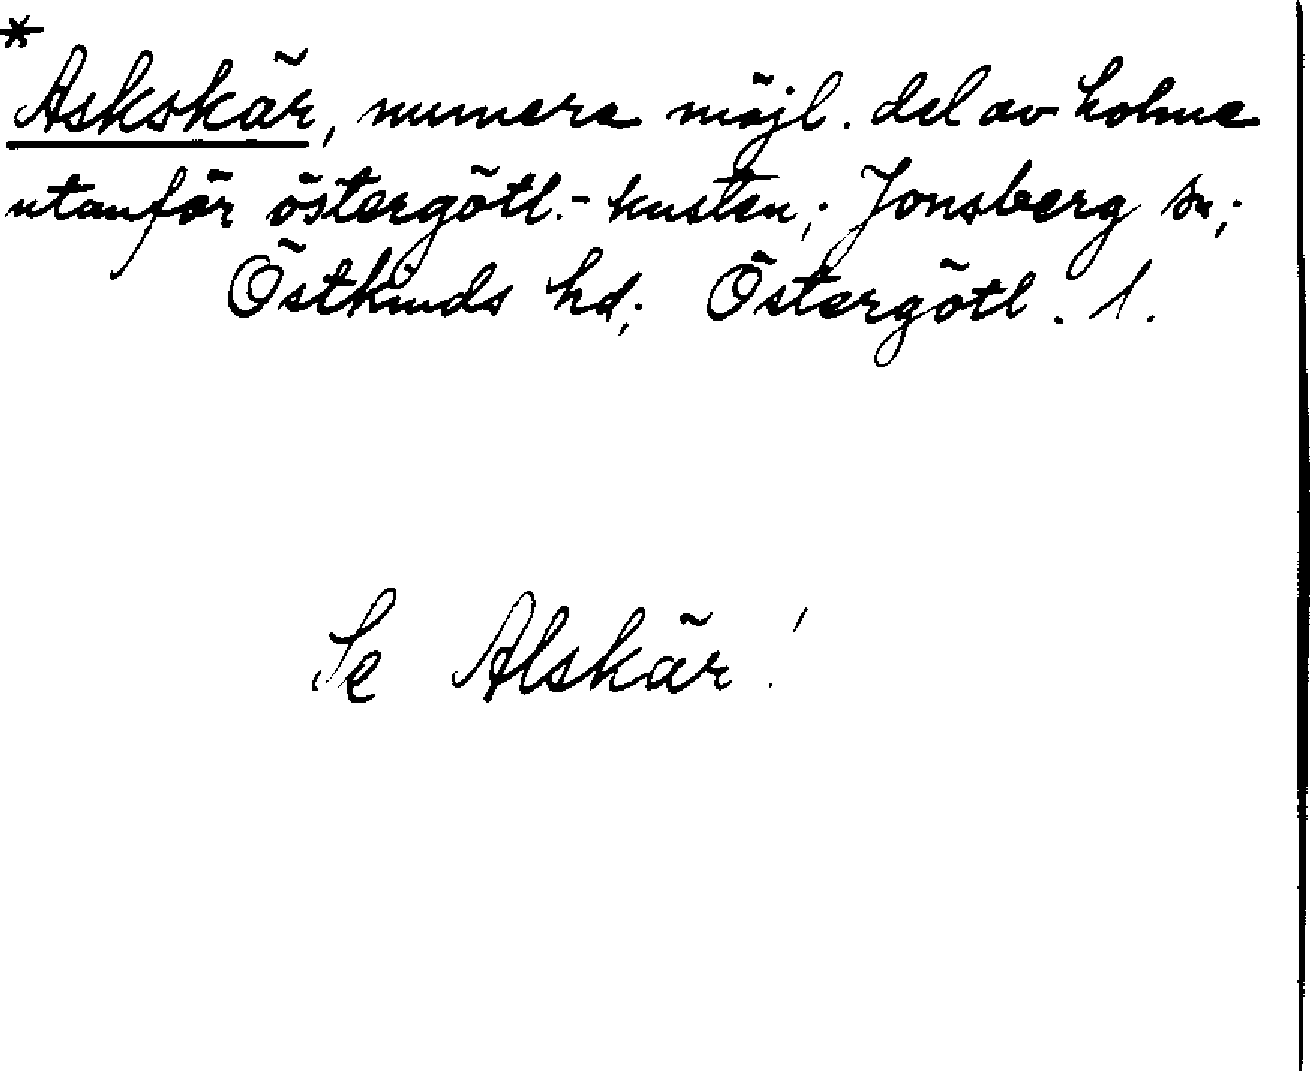 *
Askskär, numera möjl. del av holme
utanför östergötl.-kusten,; Jonsberg sn,;
Östkinds hd,; Östergötl. l.
Se Alskär!